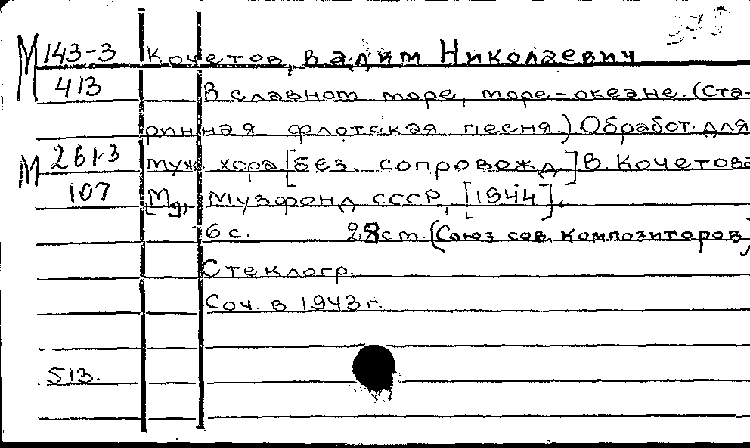 М 143-3 Кочетов, Вадим Николаевич
413 В славном море, море-океане. (Ста-
ринная флотская песня.) Обработ. для
М 261-3 муж. хора [без сопровожд.] В. Кочетова
107 [М.], Музфонд СССР, [1944].
6 с. 28 см. (Союз сов. композиторов)
Стеклогр.
Соч. в 1943 г.
513.